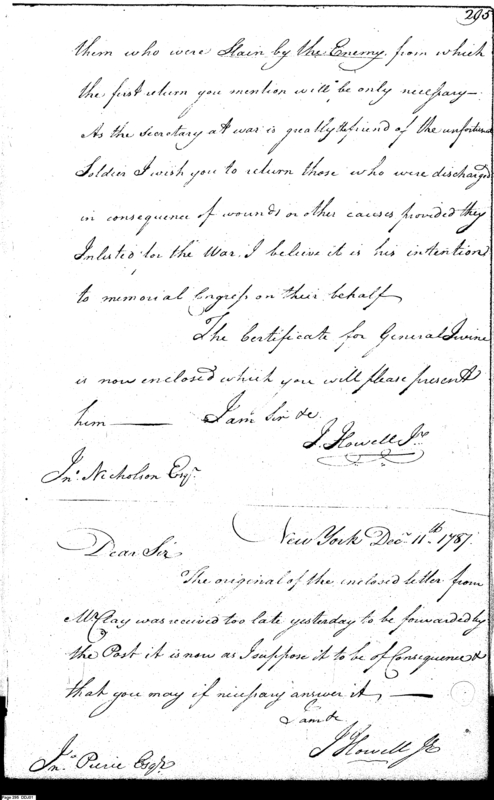 295
them who were Slain by the Enemy from which
the first return you mention will be only necessary—
As the Secretary at war is greatly the friend of the unfortunate
Soldier I wish you to return those who were discharged
in consequence of wounds or other causes provided they
Inlisted for the War. I believe it is his intention
to memorial Congress on their behalf
The Certificate for General Irvine
is now enclosed which you will please present
him —— I am Sir &c
J. Howell Jr.
Jn.º Nicholson Esqr.
New York Dec.r 11.th 1787.
Dear Sir
The original of the enclosed letter from
Mr. Clay was received too late yesterday to be forwarded by
the Post it is now as I suppose it to be of Consequence &
that you may if necessary answer it ——
I am &c
J Howell Jr
Jn.º Pierce Esqr.
Page 295